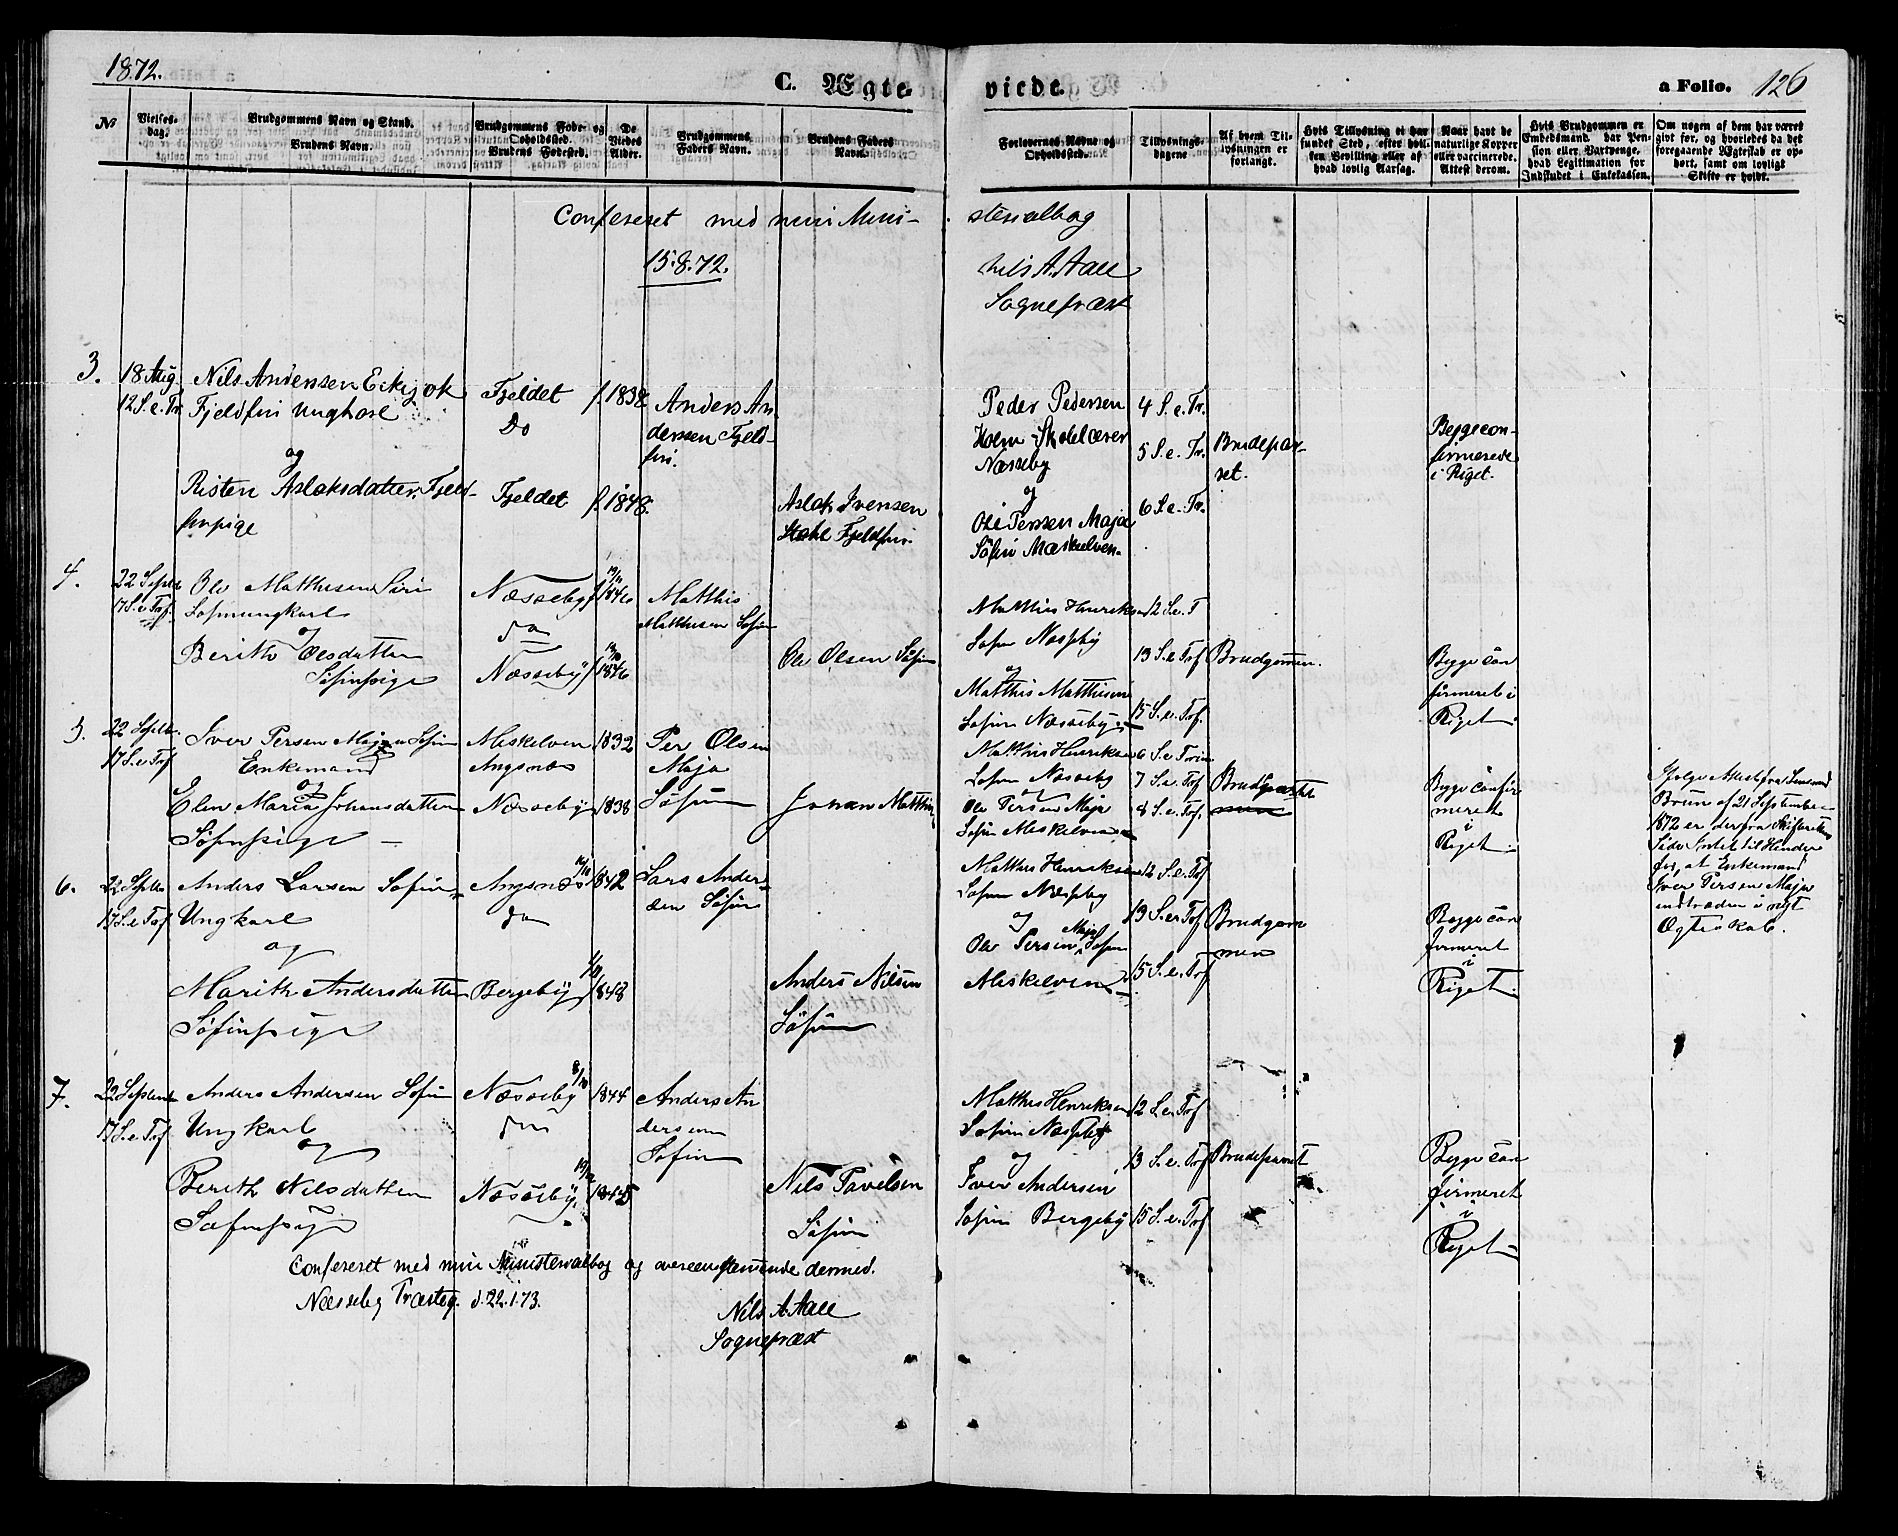 1872.
C. Ægteviede.
a Folio. 126
No
Vielses-
dag.
Brudgommens Navn og Stand.
Brudens Navn.
Brudgommens Føde- og
Opholdssted.
Brudens Fødested.
De
Viedes
Alder.
Brudgommens
Faders Navn.
Brudens Faders
Navn.
Forlovernes Navne og
Opholdssted.
Tillysnings-
dagene
Af hvem Til-
lysningen er
forlangt.
Hvis Tillysning ei har
fundet Sted, efter hvil-
ken Bevilling eller af
hvad lovlig Aarsag.
Naar havt de
naturlige Kopper
eller vaccinerede.
Attest derom.
Hvis Brudgommen er
Embedsmand, har Pen-
sion eller Vartpenge,
hvad Legitimation for
Indskudet i Enkekassen.
Om nogen af dem har været
givt før, og hvorledes da det
foregaaende Ægteskab er op-
hørt, samt om lovligt
Skifte er holdt.
Confereret med min Mini- sterialbog
15.8.72.
Nils A. Aall
Sognepræst
3.
18 Aug.
12 S. e. Tr.
Nils Andersen Eckijok
Fjeldfin Ungkarl
og
Risten Aslaksdatter, Fjeld-
finpige
Fjeldet
Do
Fjeldet
f. 1838
f. 1848.
Anders An
derssen Fjeld-
fin.
Aslak Ivensen
Fjeldfin.
Peder Pedersen
Holm Skolelærer
Næsseby
og
Ole Persen Maja
Søfin Mæskelven.
4 S. e. Tr.
5 S. e. Tr.
6 S. e. Tr.
Brudepar-
ret.
Begge con-
firmerede
i Riget.
4.
22 Septbr
17 S. e Tr.
Ole Matthisen Siri
Søfinungkarl
og
Berith Olsdatter
Søfinpige
Næsseby
do
Næsseby
19/11 1846
1846
Matthis
Matthisen Søfin
Ole Olsen Søfin
Matthis Henriksen
Søfin Næsseby
og
Matthis Matthisen
Søfin Næsseby
12 S. e. T
13 S. e. Trf
15 S. e. Trf.
Brudgommen.
Begge con
firmeret i
Riget.
5.
22 Septbr.
17 S. e Trf
Iver Persen Maja Søfin
Enkemand
og
Elen Maria Johansdatter
Søfinpige
Meskelven
Angsnæs
Næsseby
1832
1838
Per Olsen
Maja
Søfin
Johan Matthis
Matthis Henriksen
Søfin Næsseby
Ole Persen Maja
Søfin Meskelven
6 S. e. Trin
7 S. e. Trf
8 S. e. Trf.
Brudeparret
Begge confir
meret
i
Riget.
Ifølge Attest fra Lensmd
Brun af 21 September
1872 er der fra Skifterettens
Side Intet til Hinder
for, at Enkemand
Iver Persen Maja
indtræder i nyt
Ægteskab.
6.
22 Septbr
17 S. e Trf
Anders Larsen Søfin
Ungkarl
og
Marith Andersdatter
Søfinpige
Angsnæs
do
Bergeby
1842
1848
Lars Ander
sen Søfin
Anders Nilsen
Søfin
Matthis Henriksen
Søfin Næsseby
og
Ole Persen Maja Søfin
Meskelven
12 S. e. Trf
13 S. e. Trf
15 S. e. Trf
Brudgom
men
Begge con
firmeret
i
Riget.
7.
22 Septemb
17 S. e Trf
Anders Andersen Søfin
Ungkarl
og
Berith Nilsdatter
Søfinpige
Næsseby
do
Næsseby
8/10 1844
19/2 1845
Anders An
dersen
Søfin
Nils Pavelsen
Søfin
Matthis Henriksen
Søfin Næsseby
og
Iver Andersen
Søfin Bergeby
12 S. e. Trf
13 S. e. Trf
15 S. e. Trf
Brudeparret
Begge con
firmeret
i
Riget
Confereret med min Ministerialbog og overeenstemmende dermed.
Næsseby Præsteg. d. 22.1.73.
Nils A. Aall
Sognepræst